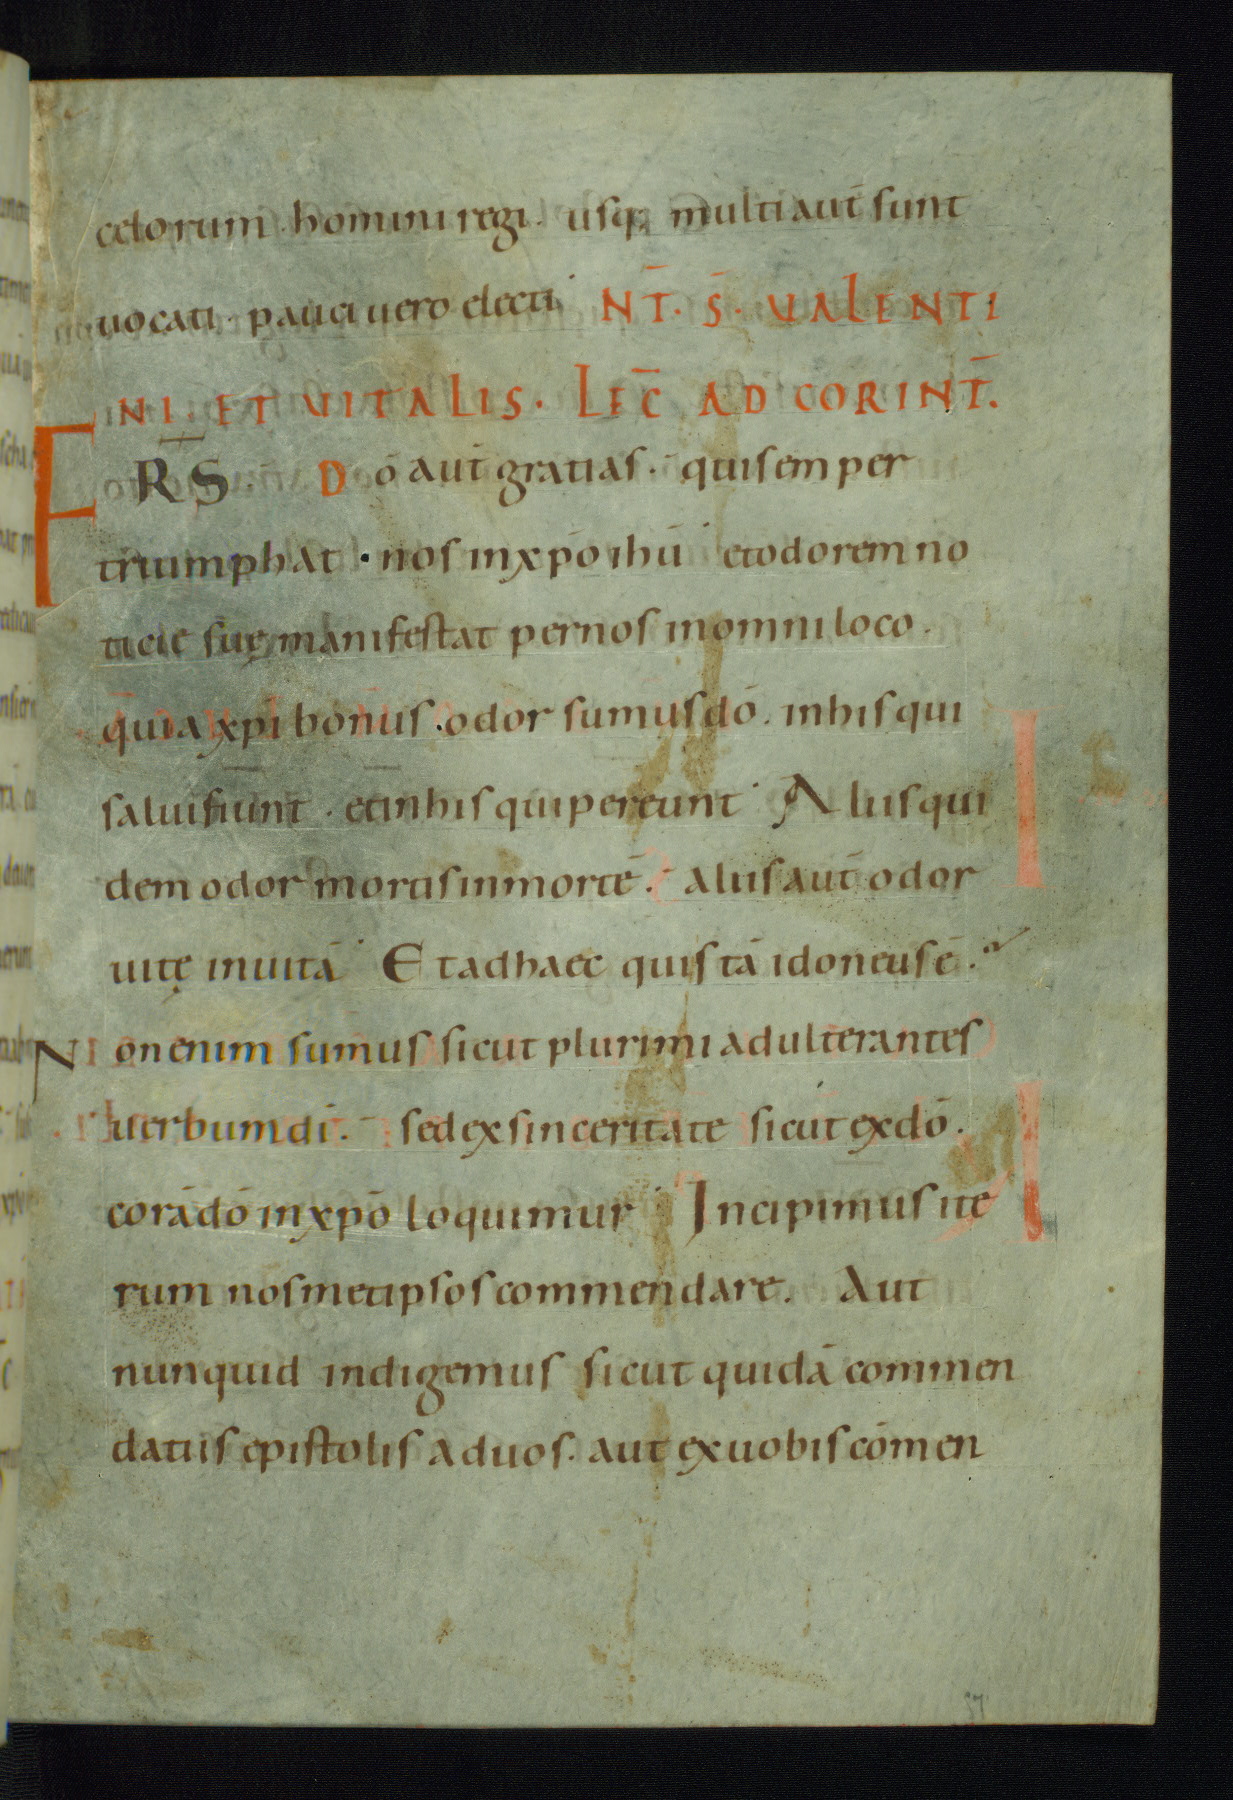 celorum · homini regi · usq; multi aut̄ sunt
uocati · pauci uero electi NT̄ · S̄ · UALENTI
NI · ET UITALIS · LEC̄ AD CORINT̄ ·
FR̄S D ō aut̄ gratias · qui semper
triumphat · nos in xp̄o ihū et odorem no
ticie suę manifestat per nos in omni loco ·
quia xp̄i bonus · odor sumus dō · in his qui
salui fiunt · et in his qui pereunt Aliis qui
dem odor mortis in mortē · aliis aut̄ odor
uitę in uitā Et ad haec quis tā idoneus ē ·
Non enim sumus sicut plurimi adulterantes
uerbum dī · sed ex sinceritate sicut ex dō ·
corā dō in xp̄o loquimur Incipimus ite
rum nosmetipsos commendare · Aut
nunquid indigemus sicut quidā commen
datiis epistolis ad uos · aut ex uobis cōmen
57